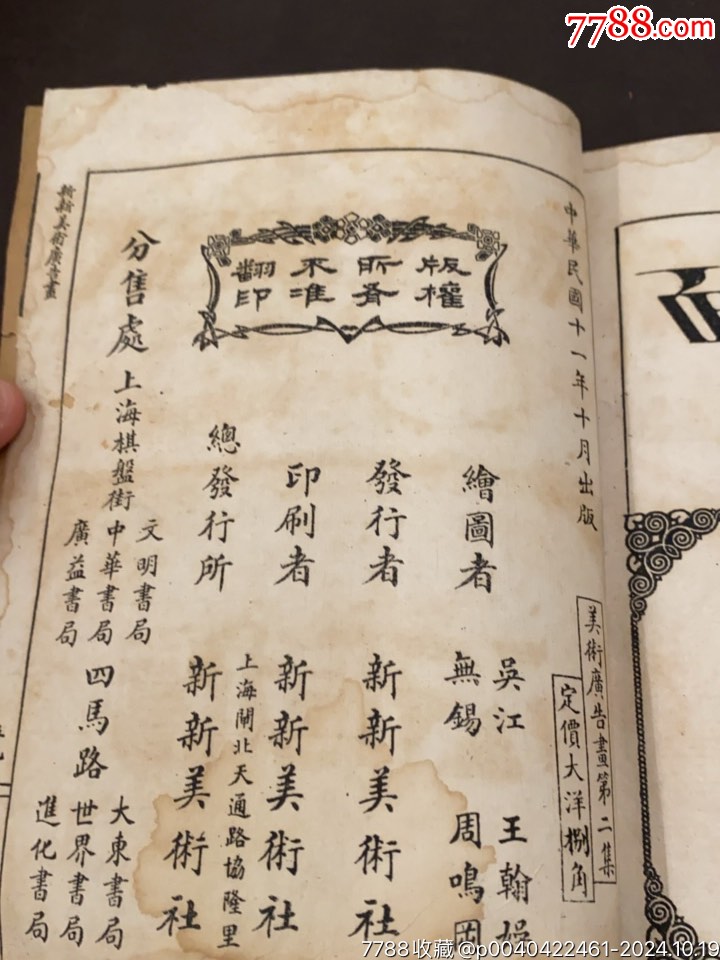 7788.com
中華民國十一年十月出版
美術廣告畫第二集
定價大洋捌角
版權
所有
不准
翻印
繪圖者
吳江 王翰
無錫 周鳴
發行者 新新美術社
印刷者 新新美術社
上海閘北天通路協隆里
總發行所 新新美術社
分售處
上海棋盤街
文明書局
中華書局
廣益書局
四馬路
大東書局
世界書局
進化書局
新新美術廣告畫
7788收藏@p0040422461-2024.10.19